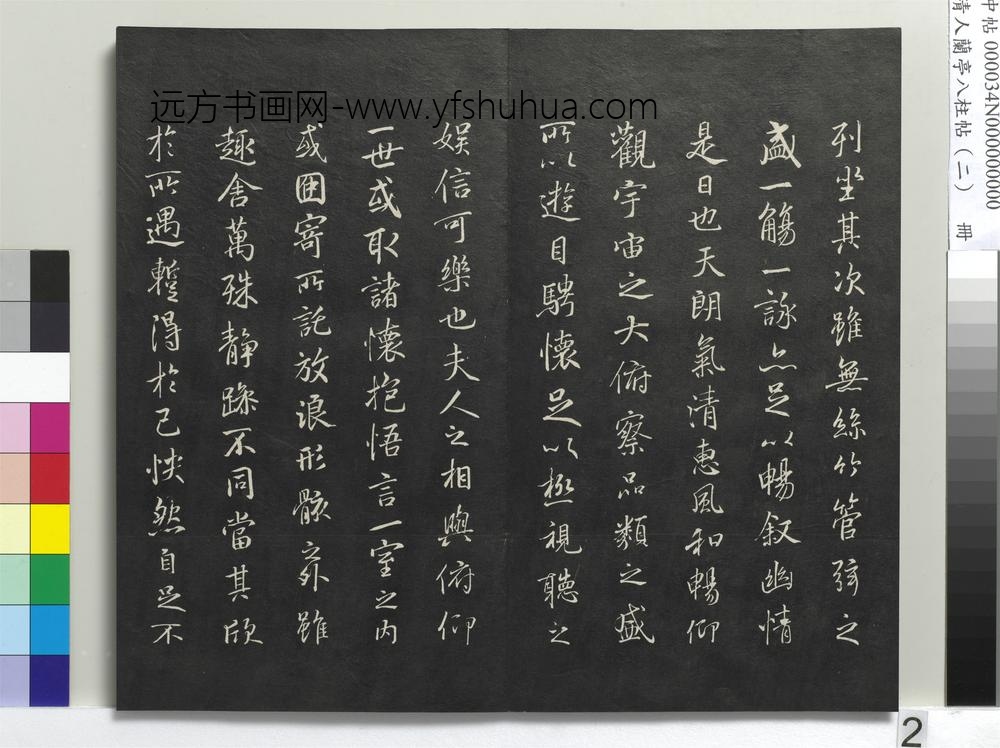 列坐其次雖無絲竹管弦之
盛一觴一詠亦足以暢叙幽情
是日也天朗氣清惠風和暢仰
觀宇宙之大俯察品類之盛
所以遊目騁懷足以極視聽之
娛信可樂也夫人之相與俯仰
一世或取諸懷抱悟言一室之內
或因寄所託放浪形骸之外雖
趣舍萬殊靜躁不同當其欣
於所遇暫得於己怏然自足不
远方书画网-www.yfshuhua.com
中帖000034N000000000
清人蘭亭八柱帖(二) 冊
2